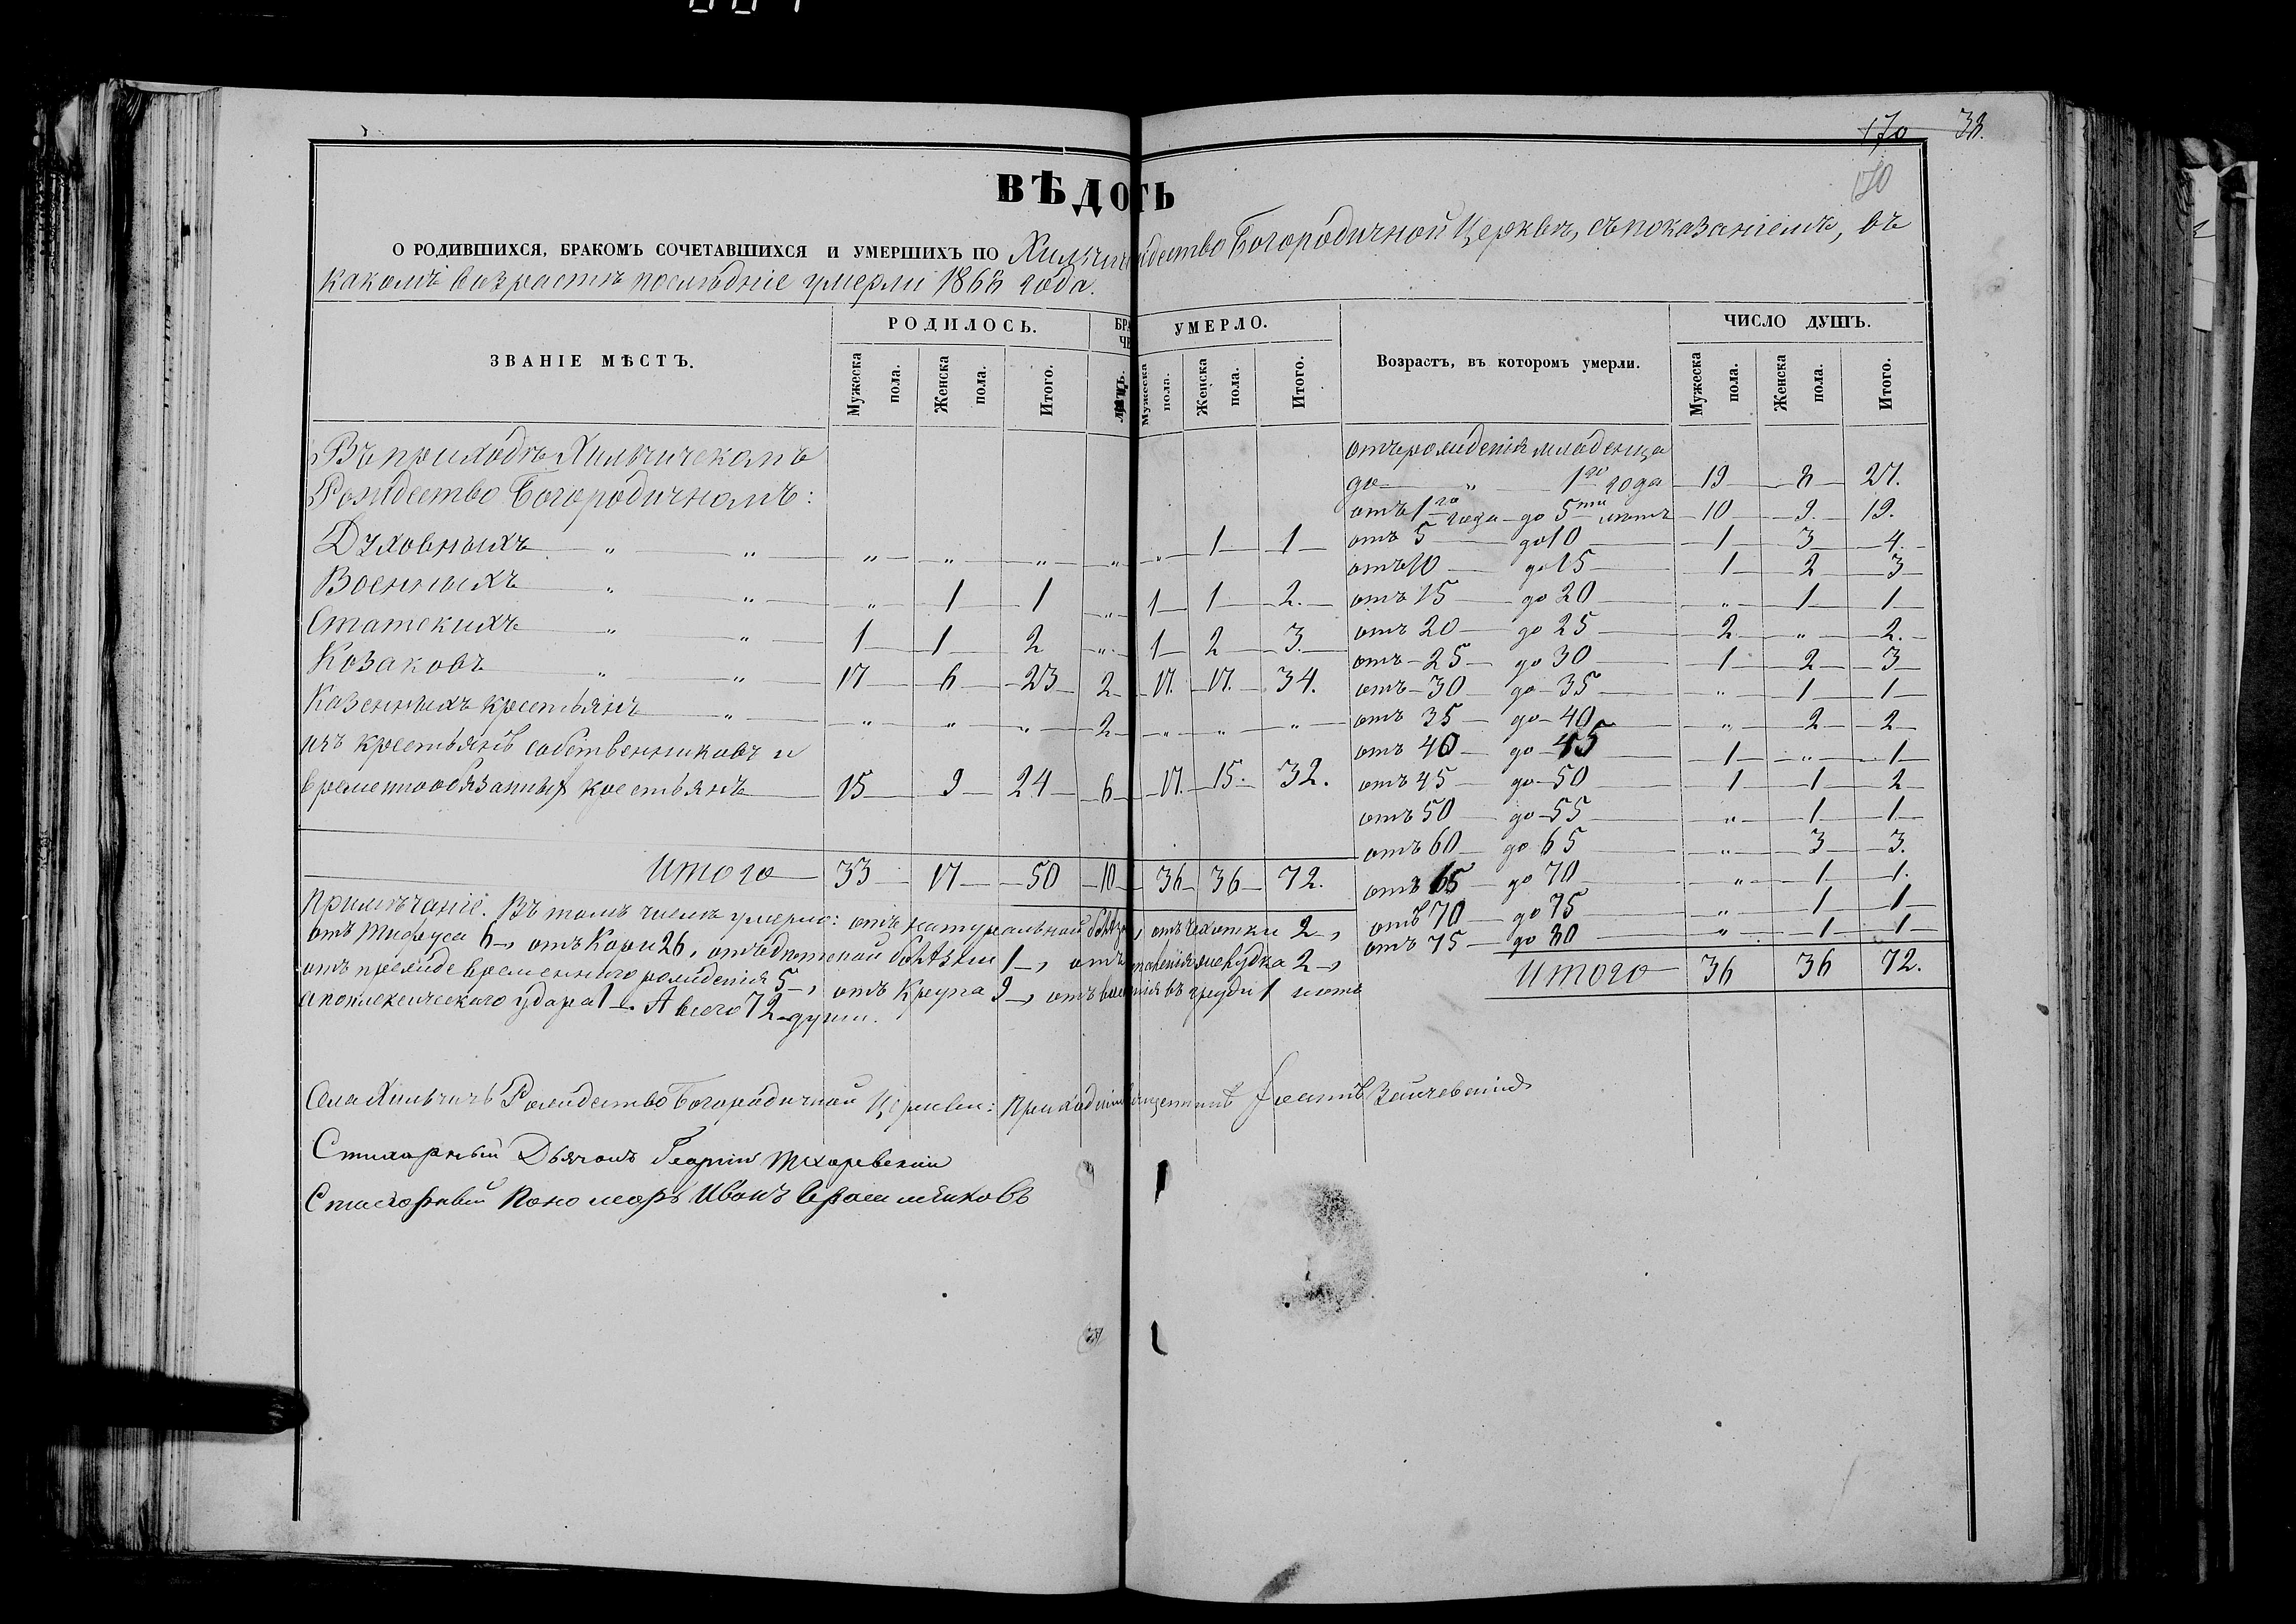 170 38.
170
ВѢДО ТЬ
О РОДИВШИХСЯ, БРАКОМЪ СОЧЕТАВШИХСЯ И УМЕРШИХЪ ПО Хильчич ждество Богородичной Церкви, съ показаніемъ, въ
какомъ возрастѣ послѣдніе умерли 186 года.
ЗВАНІЕ МѢСТЪ. РОДИЛОСЬ. УМЕРЛО. Возрастъ, въ которомъ умерли. ЧИСЛО ДУШЪ.
Мужеска пола. Женска пола. Итого. Мужеска пола. Женска пола. Итого. Мужеска пола. Женска пола. Итого.
Въ приходѣ Хильчичскомъ
Рождество Богородичномъ:
Духовныхъ „ „ „ „ „ „ „ 1 1
Военныхъ „ „ „ 1 1 „ 1 1 2.
Статскихъ „ „ 1 1 2 „ 1 2 3.
Козаковъ „ „ 17 6 23 2 17. 17. 34.
Казенныхъ крестьянъ „ „ „ „ 2 „ „ „
изъ крестьянъ собственниковъ и
временнообязанных крестьянъ 15 9 24 6 17. 15. 32.
Итого 33 17 50 10 36 36 72.
отъ рожденія младенца
до „ 1го года 19 8 27.
отъ 1го года до 5ти лѣтъ 10 9. 19.
отъ 5 до 10 1 3 4.
отъ 10 до 15 1 2 3
отъ 15 до 20 „ 1 1
отъ 20 до 25 2 „ 2.
отъ 25 до 30 1 2 3
отъ 30 до 35 „ 1 1
отъ 35 до 40 „ 2 2
отъ 40 до 45 1 „ 1
отъ 45 до 50 1 1 2
отъ 50 до 55 „ 1 1
отъ 60 до 65 „ 3 3.
отъ 65 до 70 „ 1 1.
отъ 70 до 75 „ 1 1
отъ 75 до 80 „ 1 1
Итого 36 36 72.
Примѣчаніе. Въ томъ числѣ умерло: отъ натуральной , отъ чахотки 2,
отъ Тифуса 6, отъ Кори 26, отъ дѣтской болѣзни 1, отъ желудка 2,
отъ преждевременнаго рожденія 5, отъ Крупа 9, отъ въ груди 1 и отъ
апоплексическаго удара 1. А всего 72 души.
Села Хильчичъ Рождество Богородичной Церкви: Приходскій Іоаннъ Зайчевскій
Стихарный Дьячокъ Георгій Тихоревскій
Стихарный Пономарь Иванъ